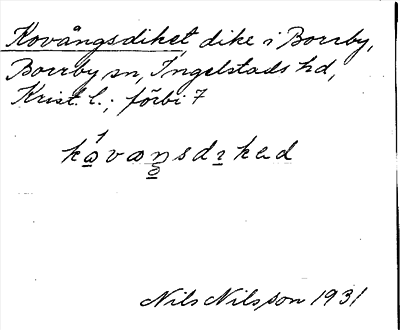 Kovångsdiket, dike i Borrby,
Borrby sn, Ingelstads hd,
Krist. l.; förbi 7
Nils Nilsson 1931